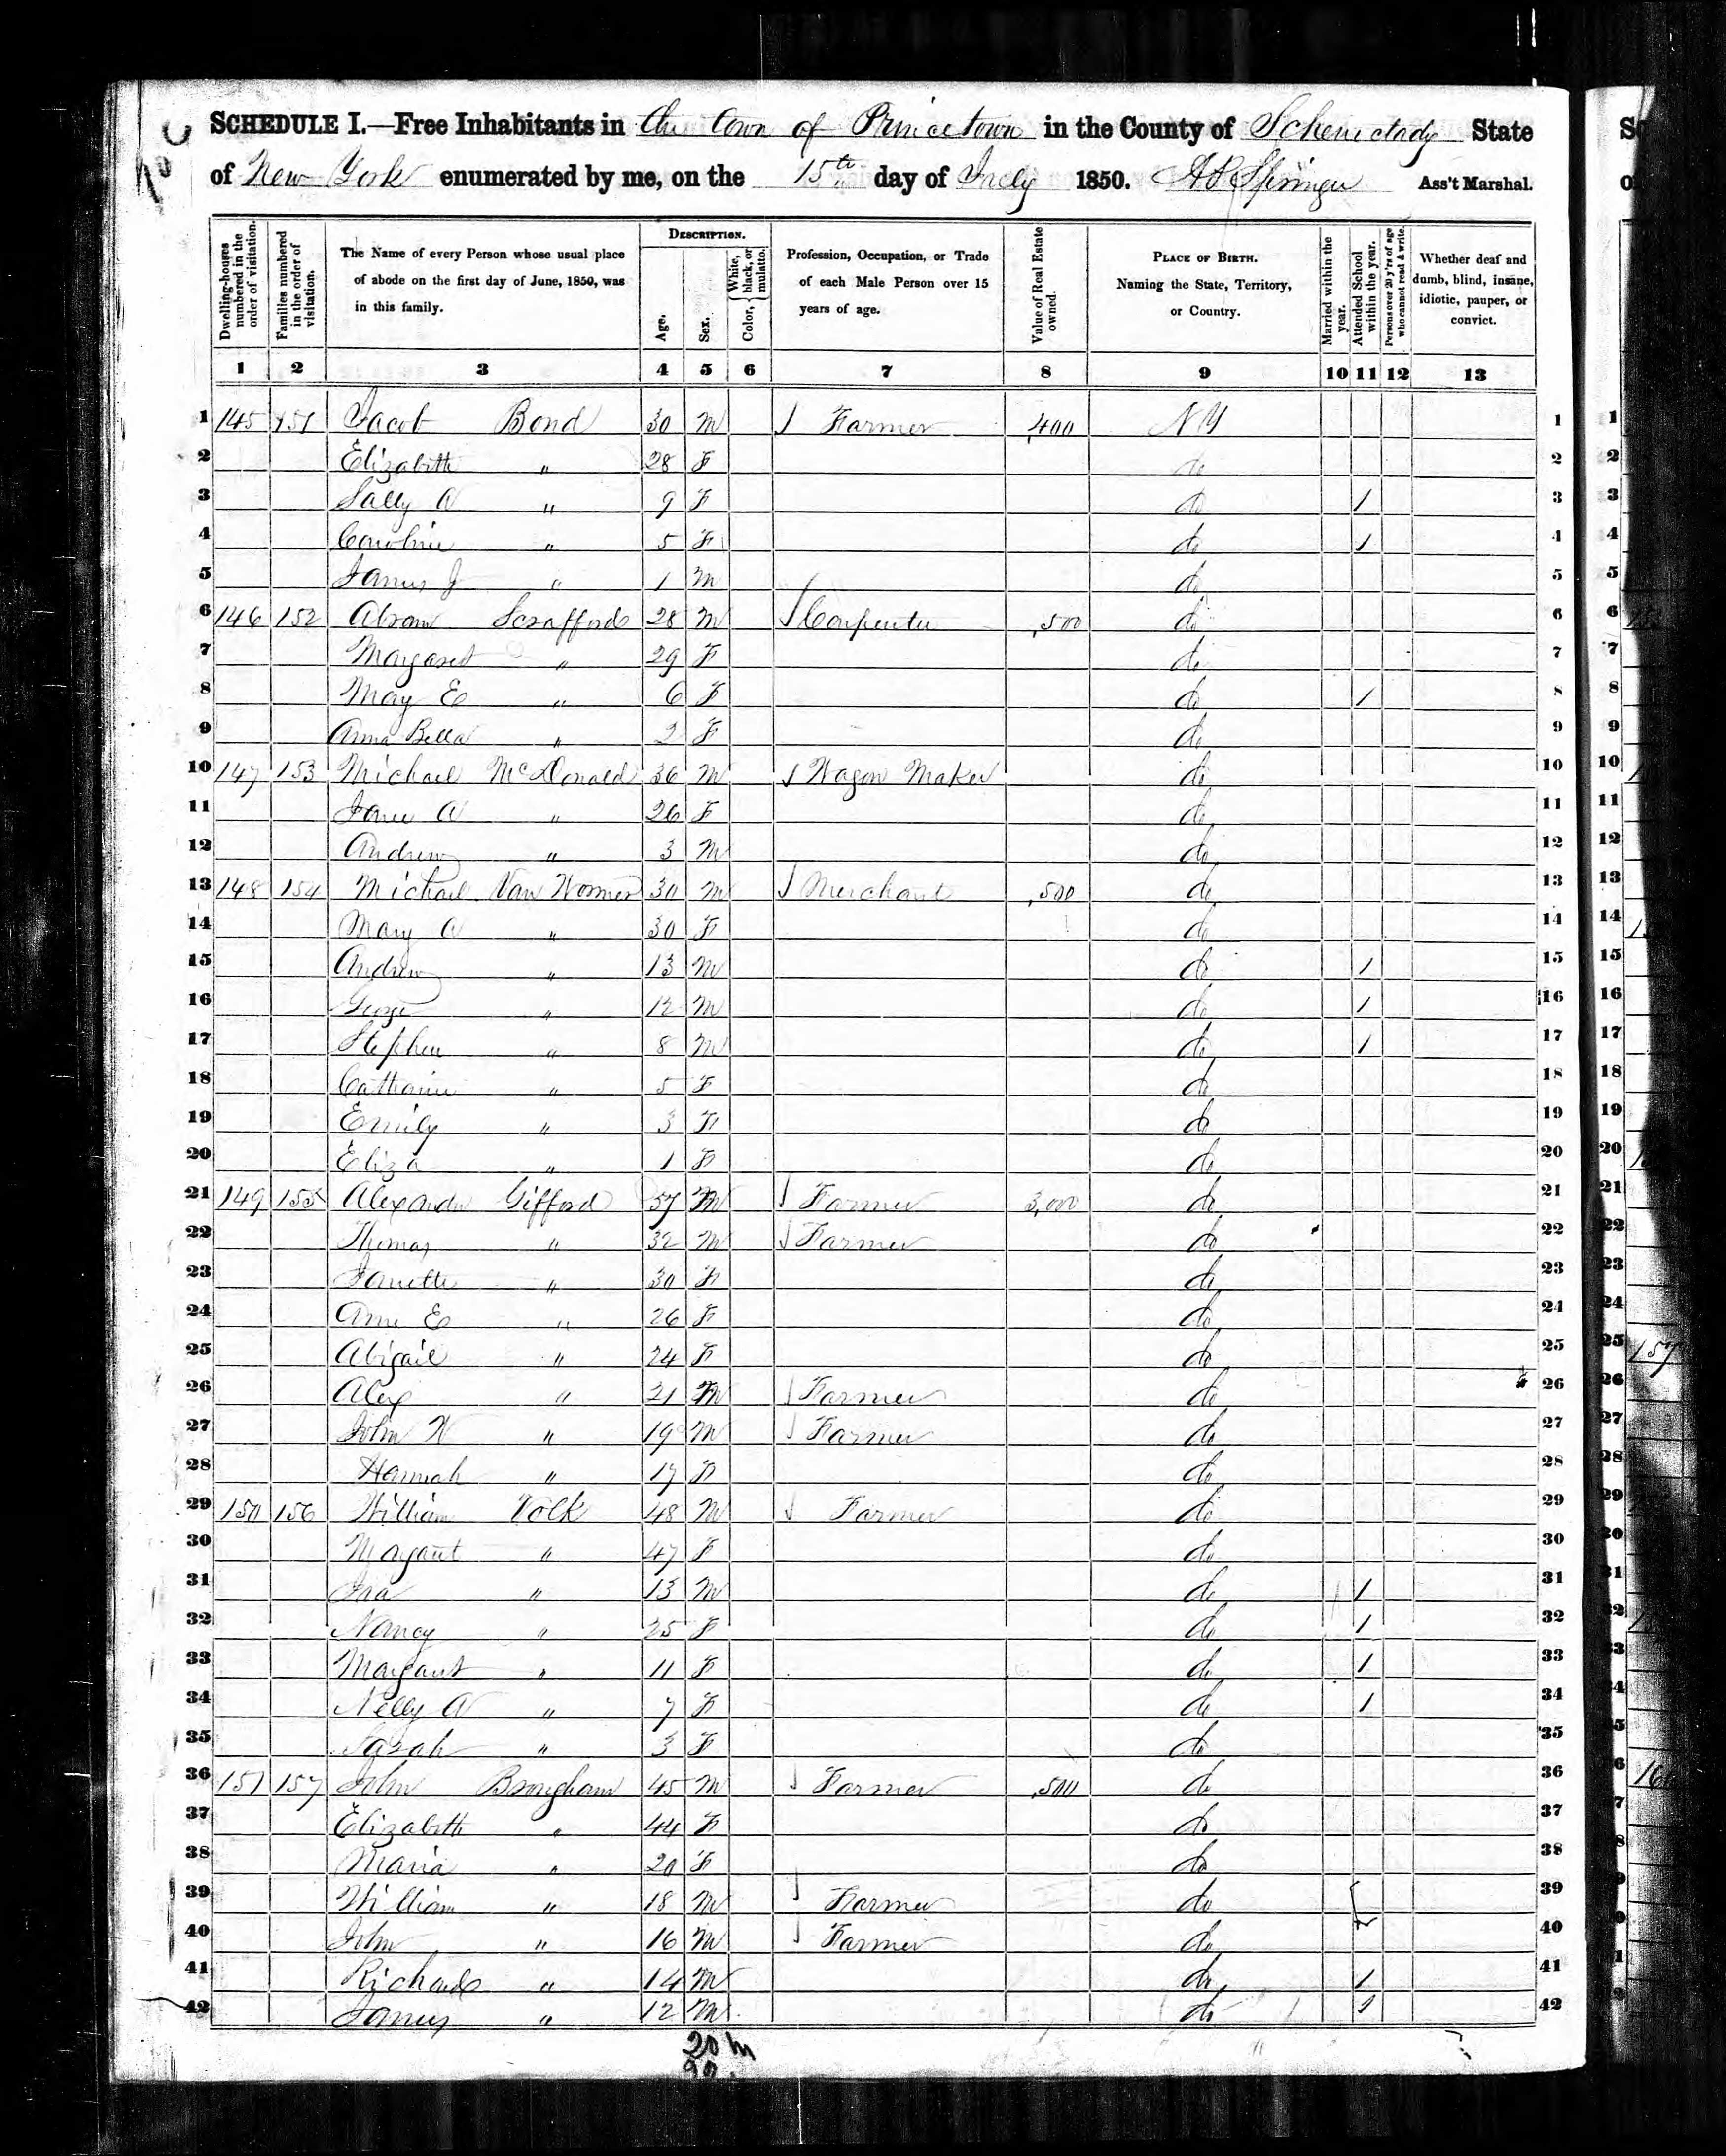 SCHEDULE I.—Free Inhabitants in the town of Princetown in the County of Schenectady State
of New York enumerated by me, on the 15th day of July 1850. Springer Ass't Marshal.
Dwelling-houses numbered in the order of visitation.
Families numbered in the order of visitation.
The Name of every Person whose usual place of abode on the first day of June, 1850, was in this family.
DESCRIPTION.
Age.
Sex.
Color, { White, black, or mulatto.
Profession, Occupation, or Trade of each Male Person over 15 years of age.
Value of Real Estate owned.
PLACE OF BIRTH.
Naming the State, Territory, or Country.
Married within the year.
Attended School within the year.
Persons over 20 y'rs of age who cannot read & write.
Whether deaf and dumb, blind, insane, idiotic, pauper, or convict.
1 2 3 4 5 6 7 8 9 10 11 12 13
1 145 151 Jacob Bond 30 M Farmer 400 N Y 1
2 Elizabeth " 28 F do 2
3 Sally A " 9 F do 1 3
4 Caroline " 5 F do 1 4
5 James J " 1 M do 5
6 146 152 Abram Scrafford 28 M Carpenter 500 do 6
7 Margaret " 29 F do 7
8 Mary E " 6 F do 1 8
9 Anna Bella " 2 F do 9
10 147 153 Michael McDonald 36 M Wagon Maker do 10
11 Jane A " 26 F do 11
12 Andrew " 3 M do 12
13 148 154 Michael Van Wormer 30 M Merchant 500 do 13
14 Mary A " 30 F do 14
15 Andrew " 13 M do 1 15
16 George " 12 M do 1 16
17 Stephen " 8 M do 1 17
18 Catharine " 5 F do 18
19 Emily " 3 F do 19
20 Eliza " 1 F do 20
21 149 155 Alexander Gifford 57 M Farmer 3,000 do 21
22 Thomas " 32 M Farmer do 22
23 Janette " 30 F do 23
24 Ann E " 26 F do 24
25 Abigail " 24 F do 25
26 Alex " 21 M Farmer do 26
27 John W " 19 M Farmer do 27
28 Hannah " 17 F do 28
29 150 156 William Volk 48 M Farmer do 29
30 Margaret " 47 F do 30
31 Ira " 13 M do 1 31
32 Nancy " 25 F do 1 32
33 Margaret " 11 F do 1 33
34 Nelly A " 7 F do 1 34
35 Sarah " 3 F do 35
36 151 157 John Brougham 45 M Farmer 500 do 36
37 Elizabeth " 44 F do 37
38 Maria " 20 F do 38
39 William " 18 M Farmer do 39
40 John " 16 M Farmer do 40
41 Richard " 14 M do 1 41
42 James " 12 M do 1 42
20 m